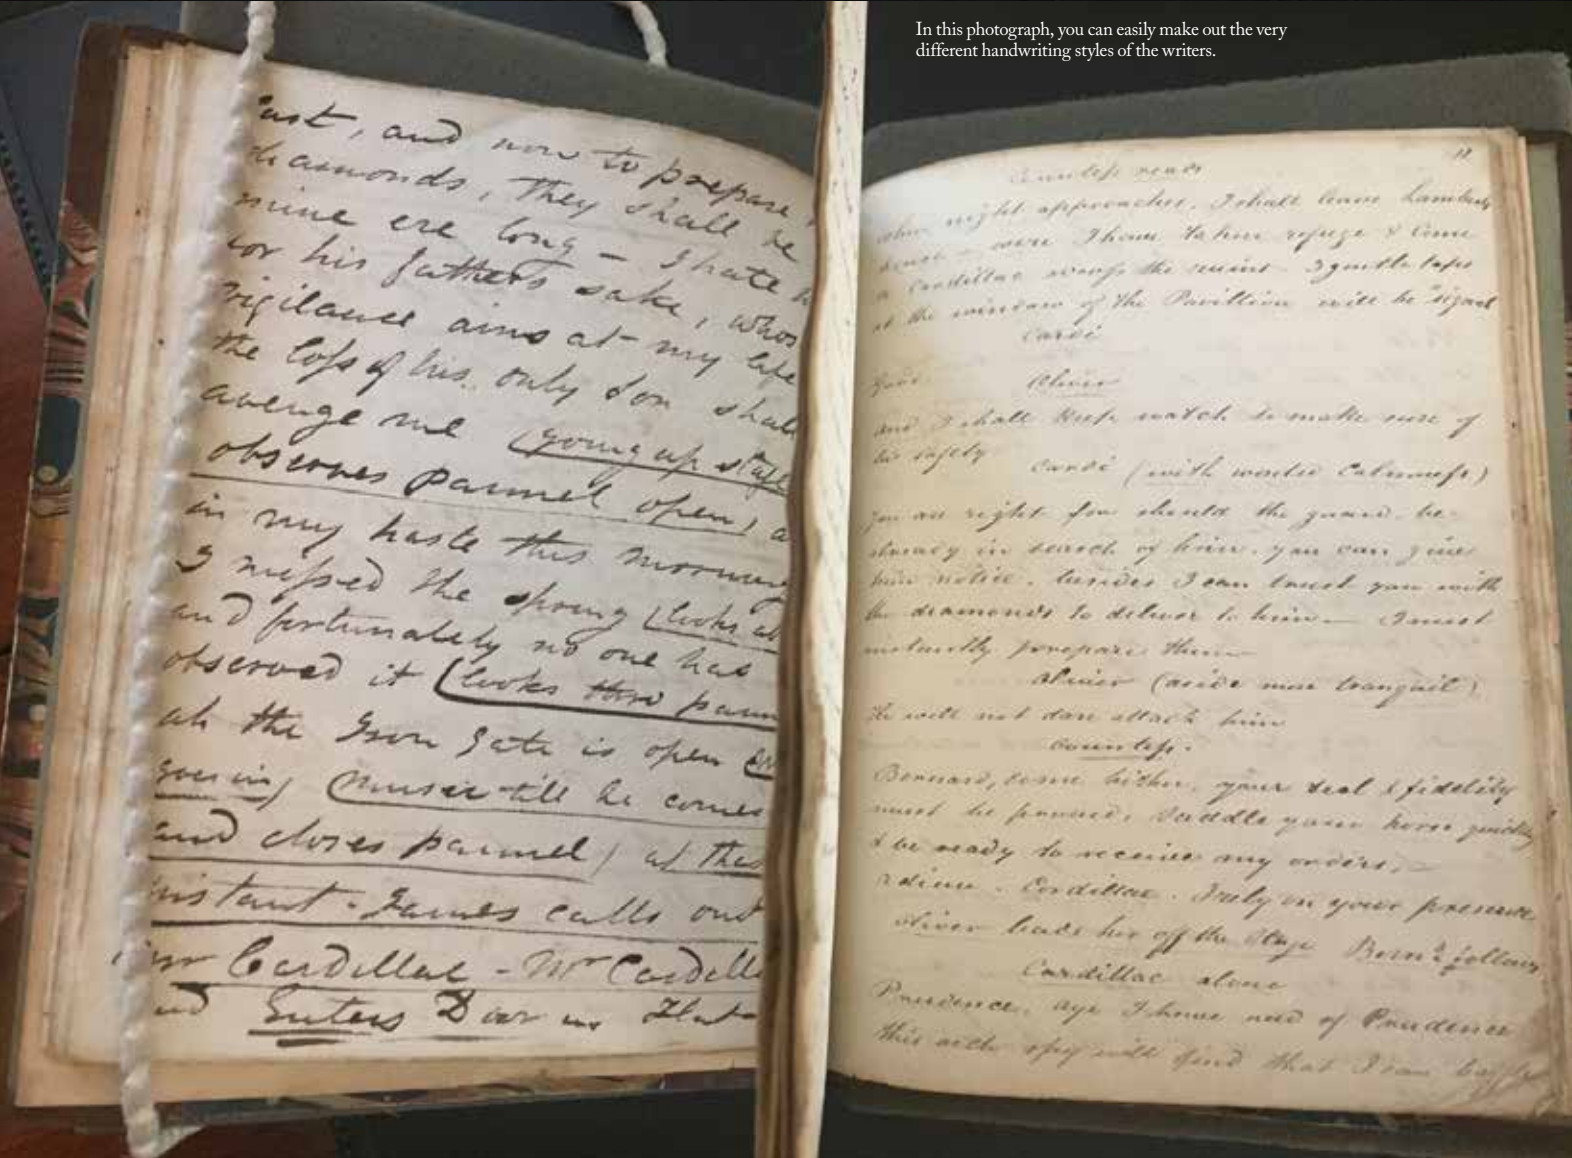 In this photograph, you can easily make out the very
different handwriting styles of the writers.
and now to prepare
diamonds, they shall be
mine ere long – I hate
for his father's sake, whos
vigilance aims at my life
the loss of his only son shal
avenge me (going up stage
observes pannel open)
in my haste this morning
I missed the spring (looks at
and fortunately no one has
observed it (looks thro pann
ah the Iron Gate is open
goes in) (Music till he comes
and closes pannel) at this
instant - James calls out
Cardillac - Mr Cardill
and Enters Door in Flat
11
Countess reads
when night approaches, I shall leave
were I have taken refuge & come
to Cardillac across the ruins. 3 gentle taps
at the window of the Pavillion will be signal
Cardi
Good.
Olivier
and I shall keep watch to make sure of
his safety
Cardi (with calmness)
you are right for should the guard be
already in search of him, you can give
him notice, besides I can trust you with
the diamonds to deliver to him — I must
instantly prepare them
Olivier (aside more tranquil)
He will not dare attack him
Countess.
Bernard, come hither, your zeal & fidelity
must be proved, Saddle your horse quickly
& be ready to receive my orders,
adieu. Cardillac. I rely on your presence
Olivier leads her off the Stage Bernd follows
Cardillac alone
Prudence, aye I have need of Prudence
this arch spy will find that I can